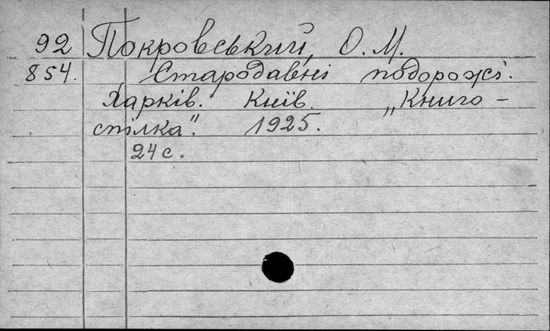 92 Покровський, О. М.
854. Стародавні подорожі.
Харків. Київ. „Книго-
спілка". 1925.
24 с.